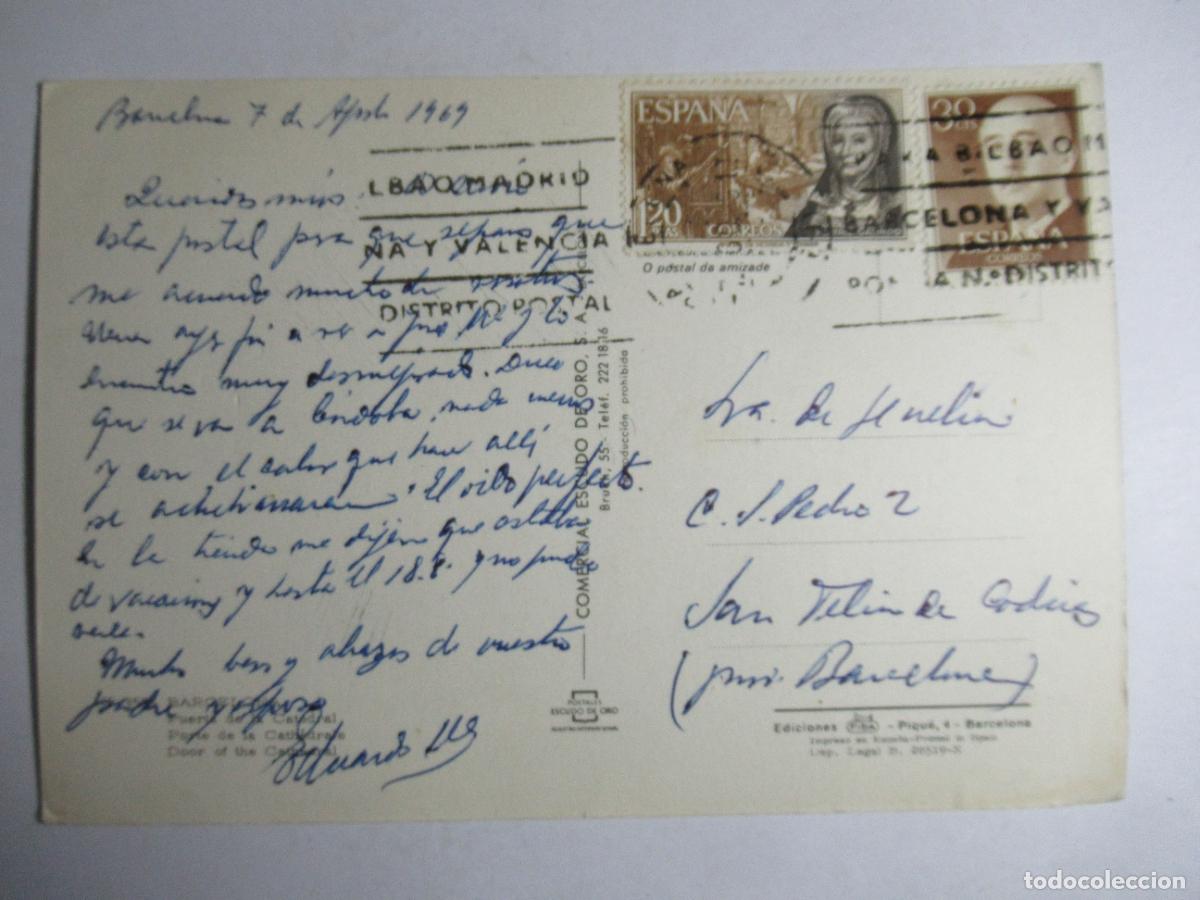 Barcelona 7 de Agosto 1969
Queridos míos
esta postal para que sepáis que
me acuerdo mucho de vosotros
ayer fui a ver a y lo
muy desmejorado. Dice
que se van a Córdoba, nada menos
y con el calor que hace allí
se achicharraran. El perfecto.
En la tienda me dijeron que estaba
de vacaciones y hasta el 18.8. y no pude
verle.
Muchos besos y abrazos de vuestro
padre y esposo
Eduardo
BARCELONA
Puerta de la Catedral
Porte de la Cathédrale
Door of the Cathedral
LBAO MADRID
NA Y VALENCIA
DISTRITO POSTAL
COMERCIAL ESCUDO DE ORO, S. A.
Bruch, 55 - Teléf. 222 18 16
prohibida
POSTALES
ESCUDO DE ORO
ESPAÑA
1,20
PTAS
CORREOS
30
CTS
ESPAÑA
CORREOS
BILBAO M
BARCELONA Y V
Nº DISTRIT
O postal da amizade
Sra. de
C. S. Pedro 2
San Feliu de Codinas
(prov. Barcelona)
Ediciones FISA - Piqué, 4 - Barcelona
Impreso en España-Printed in Spain
Dep. Legal B. 26519-X
todocoleccion